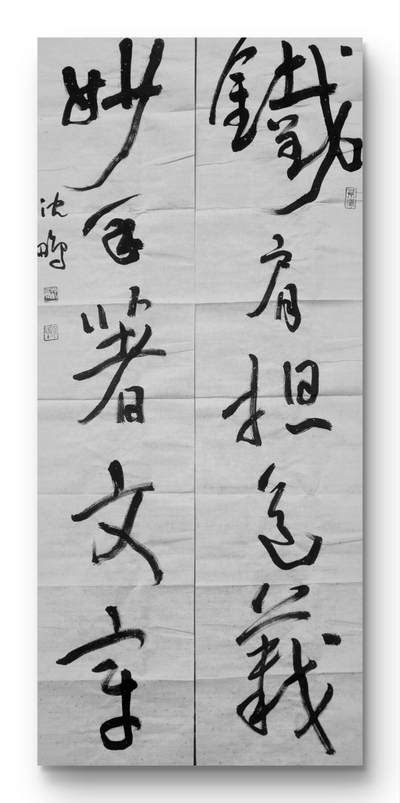 鐵肩担道義
妙手著文章
沈鹏